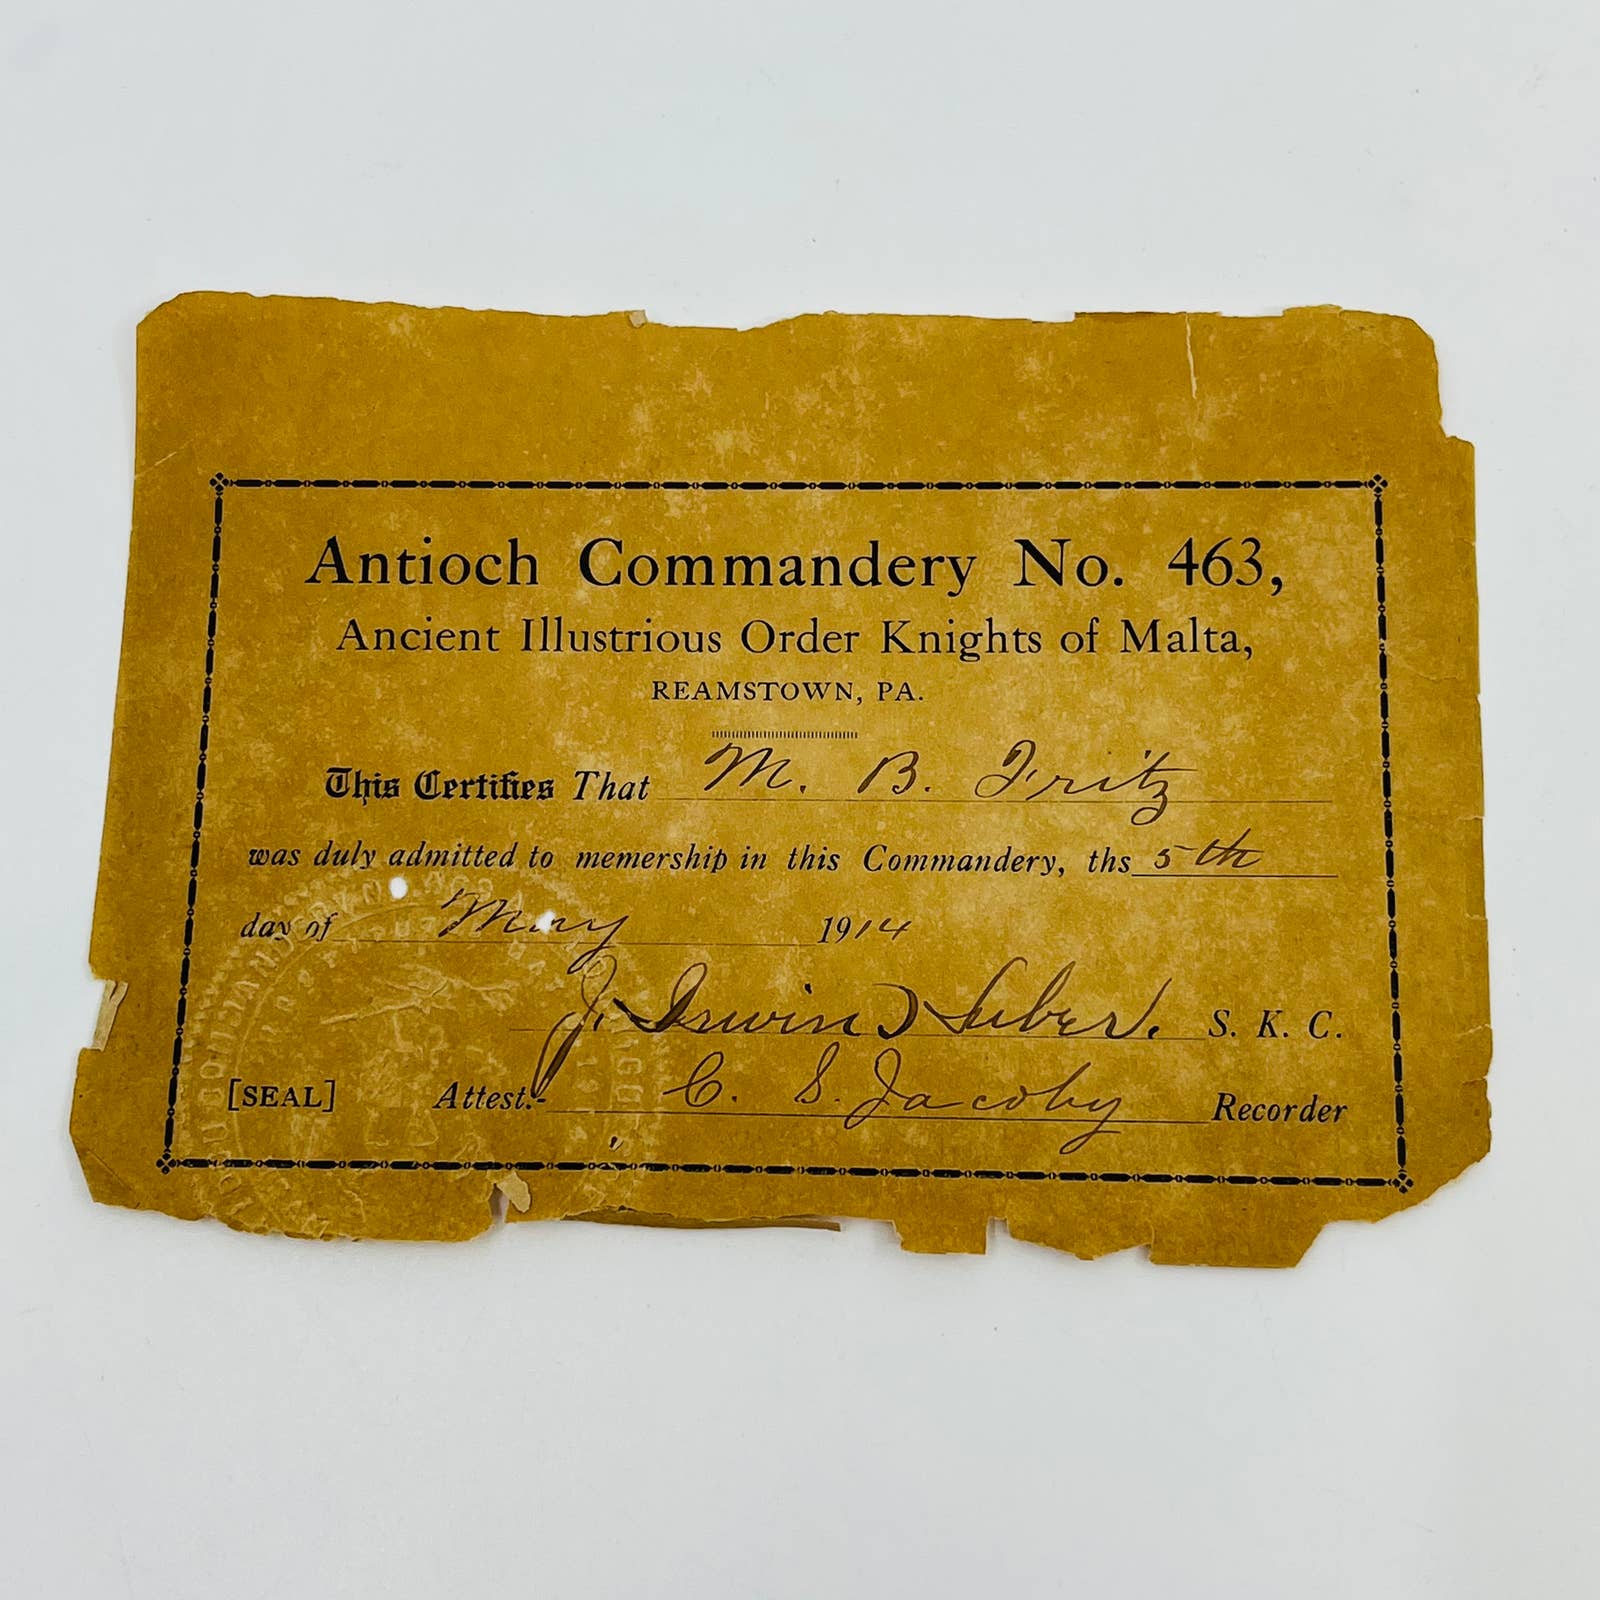 Antioch Commandery No. 463,
Ancient Illustrious Order Knights of Malta,
REAMSTOWN, PA.
This Certifies That M. B. Fritz
was duly admitted to memership in this Commandery, ths 5th
day of May 1914
J. Irwin Suber. S. K. C.
[SEAL] Attest:- C. S. Jacoby Recorder